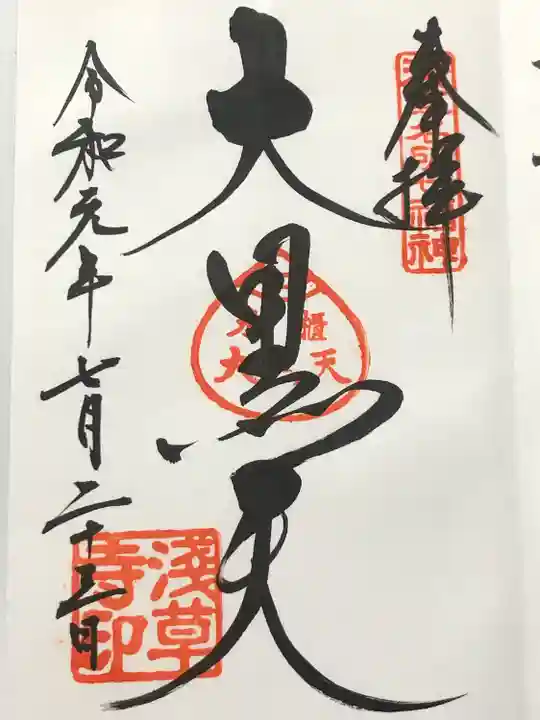 奉拝
大黒天
令和元年七月二十三日
浅草
寺印